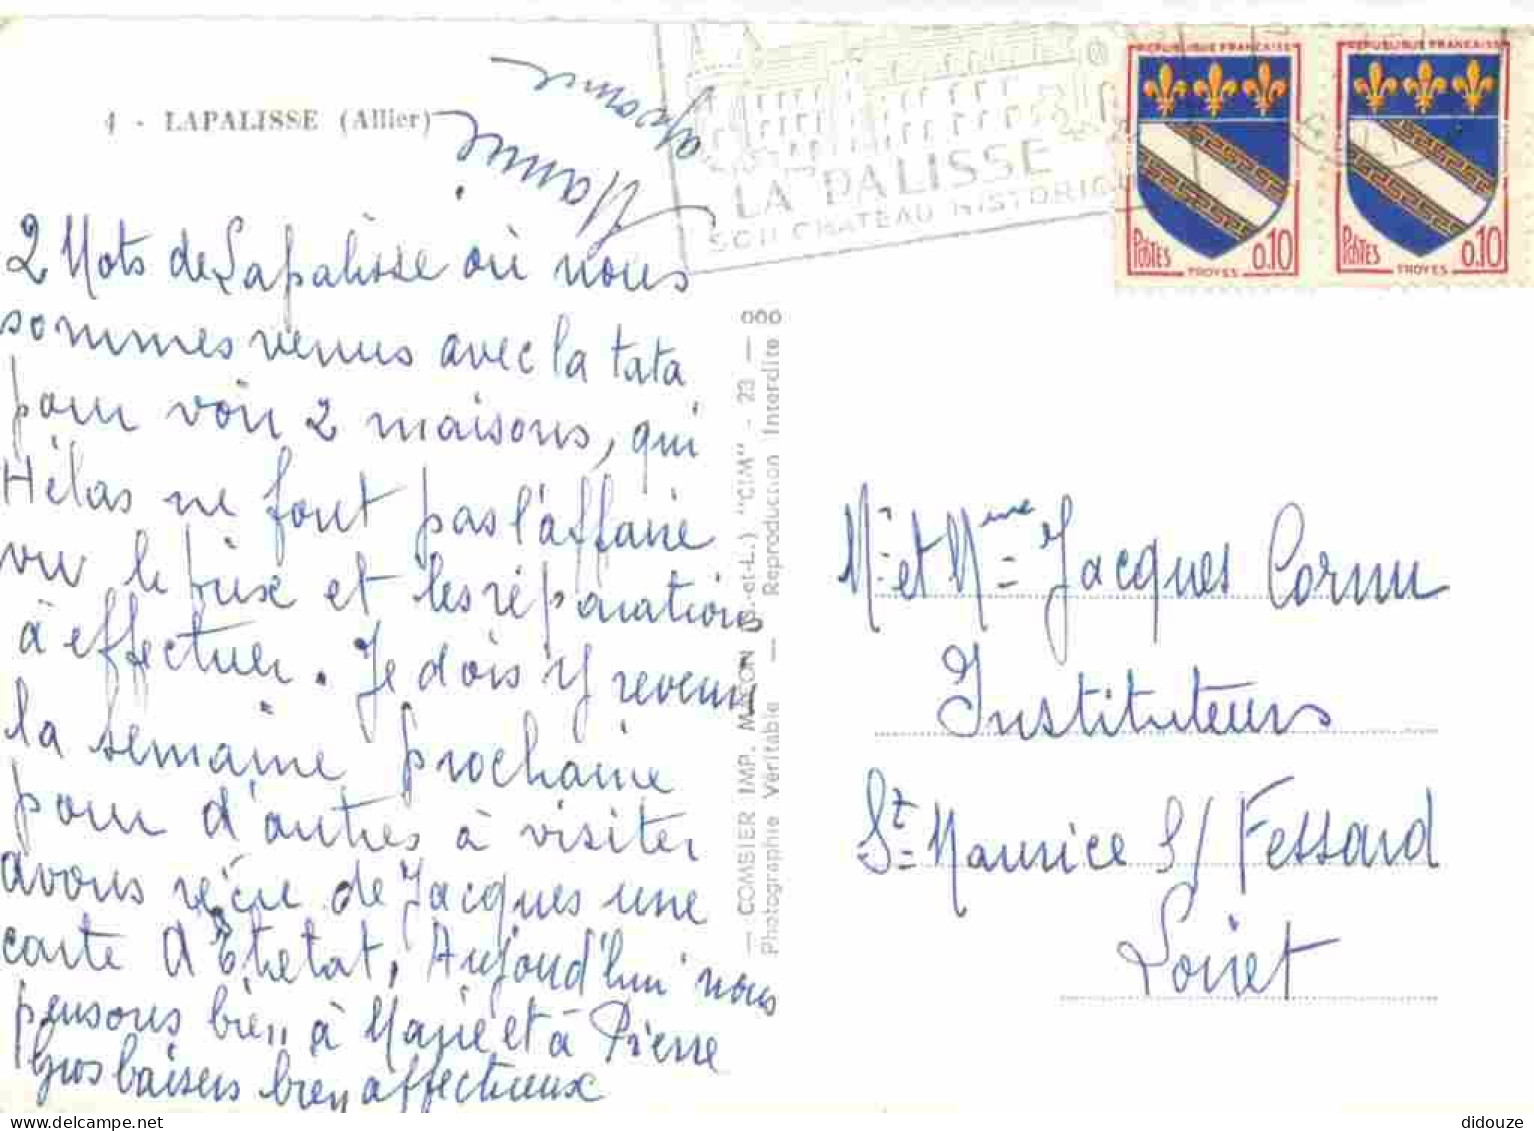 4 - LAPALISSE (Allier)
2 Mots de Lapalisse où nous
sommes venus avec la tata
pour voir 2 maisons, qui
Hélas ne font pas l'affaire
vu le prix et les réparations
à effectuer. Je dois y revenir
la semaine prochaine
pour d'autres à visiter
avons reçu de Jacques une
carte d'Etretat, Aujourd'hui nous
pensons bien à Marie et à Pierre
Gros baisers bien affectueux
Mamie
LAPALISSE
SON CHATEAU HISTORIQUE
REPUBLIQUE FRANCAISE
POSTES 0.10
TROYES
REPUBLIQUE FRANCAISE
POSTES 0.10
TROYES
— COMBIER IMP. MACON (S.-et-L.) "CIM" - 23 — 000
Photographie Véritable — Reproduction Interdite
Mr et Mme Jacques Cornu
Instituteurs
St Maurice S/ Fessard
Loiret
didouze